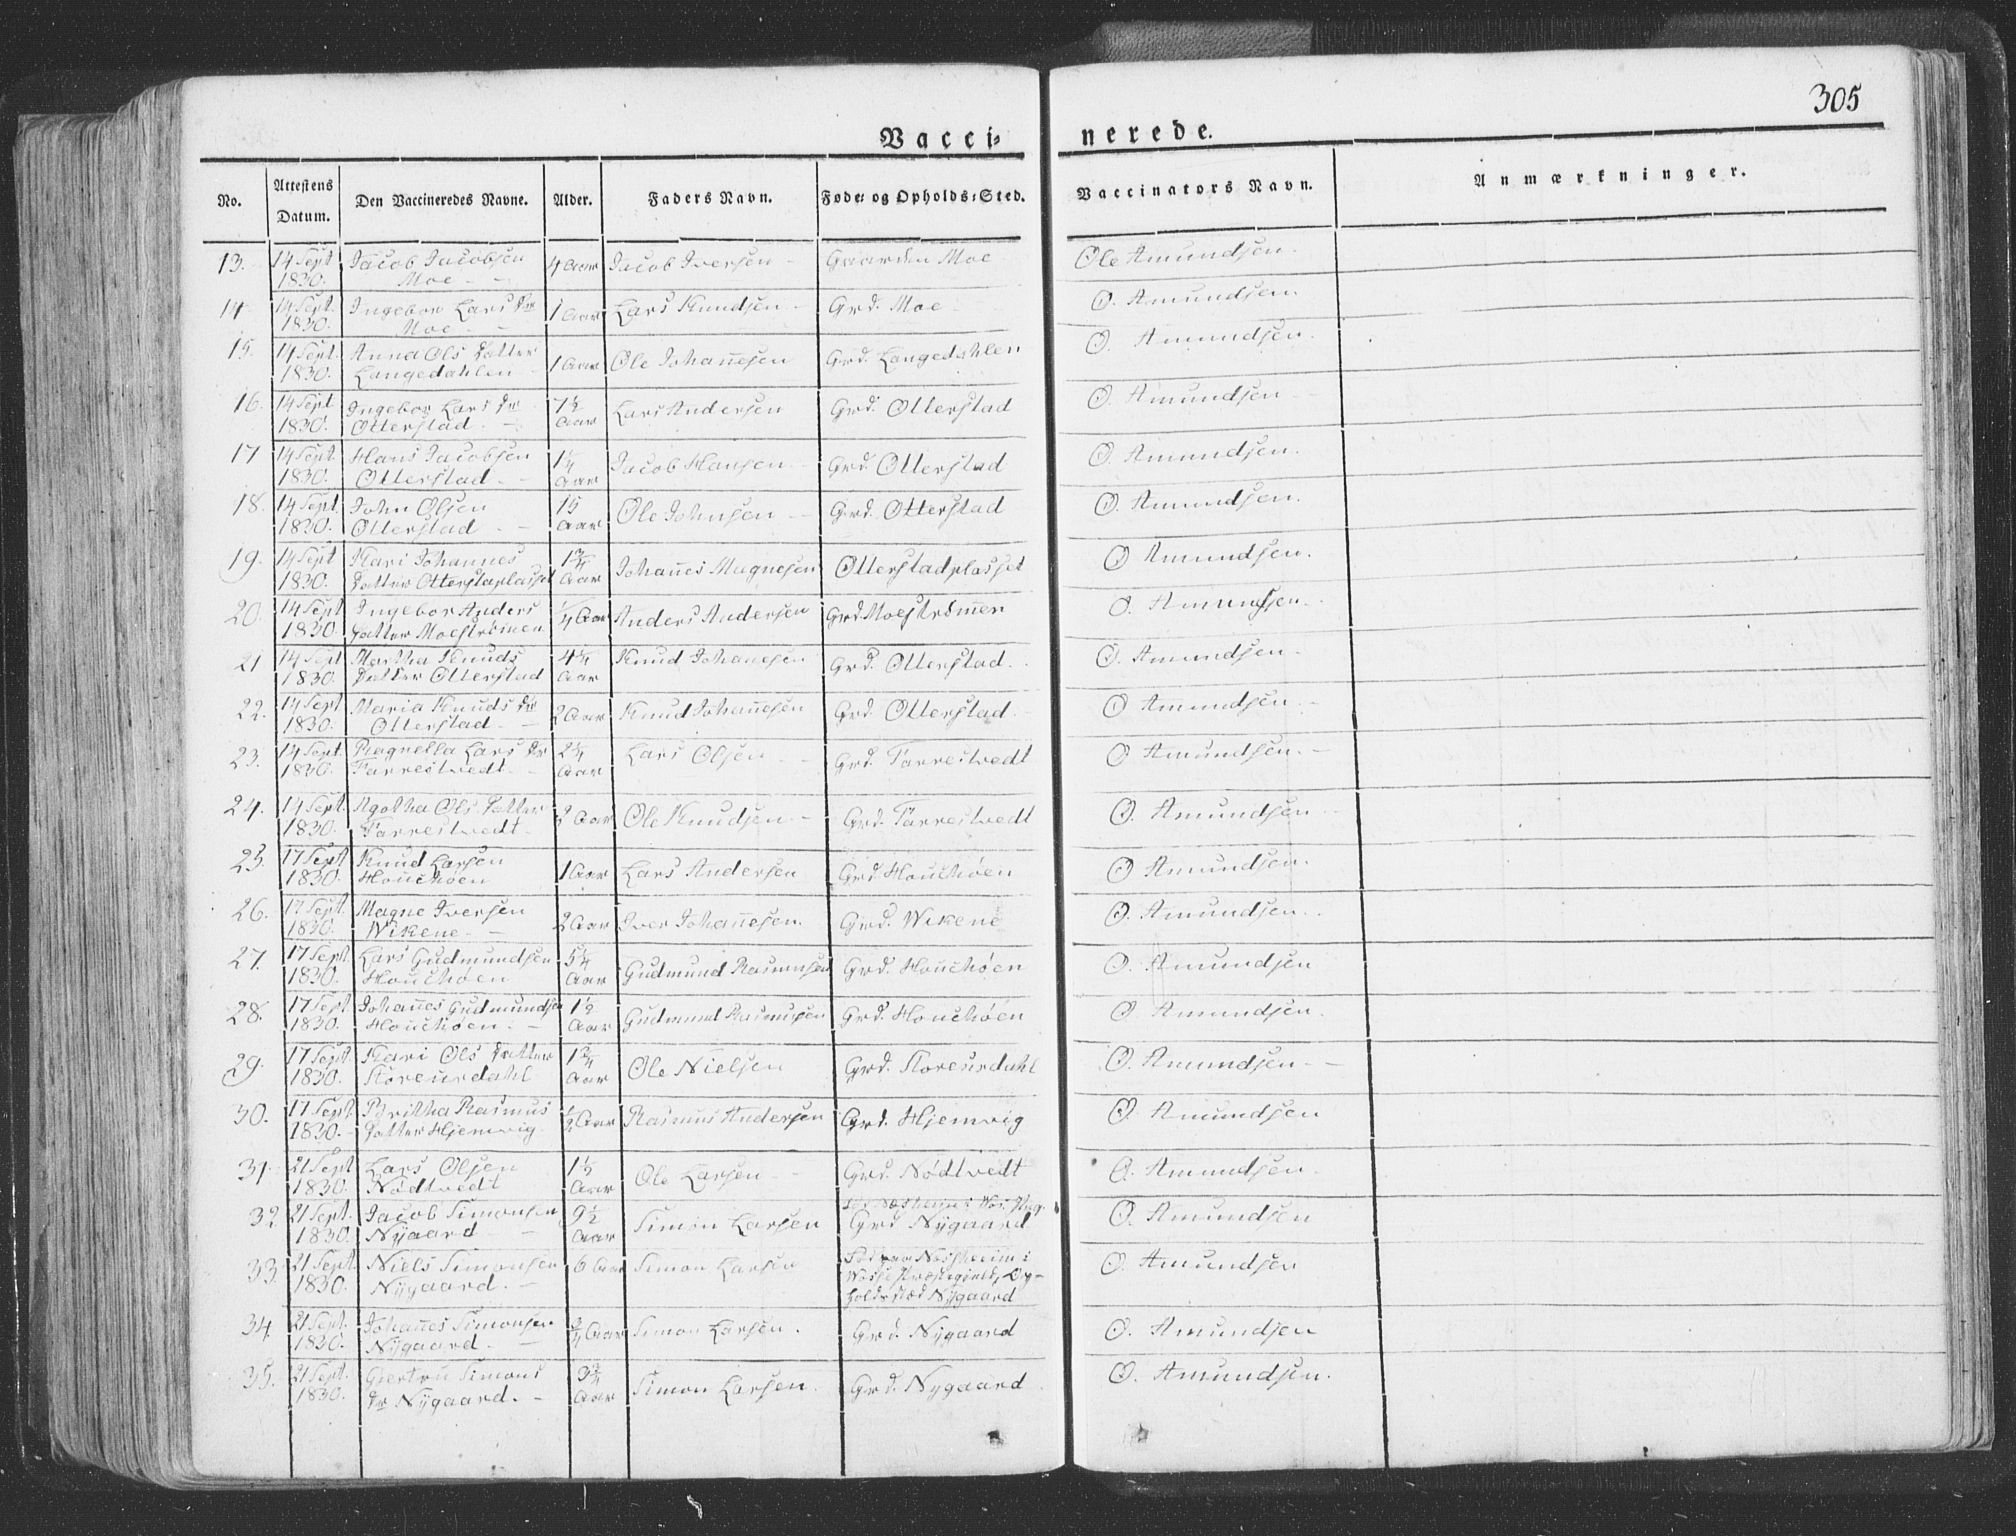 305
Vacci= nerede.
No. Attestens Datum. Den Vaccineredes Navne. Alder. Faders Navn. Føde- og Opholds-Sted. Vaccinators Navn. Anmærkninger.
13. 14 Sept 1830. Jacob Jacobsen Moe 4 Aar Jacob Iversen Gaarden Moe Ole Amundsen.
14 14 Sept. 1830. Ingebor Lars Dr Moe 1 Aar Lars Knudsen Grd. Moe O. Amundsen.
15. 14 Sept. 1830. Anna Ols Datter Langedahlen 1 Aar Ole Johañesen Grd. Langedahlen O. Amundsen.
16. 14 Sept 1830. Ingebor Lars Dr Otterstad. 7½ Aar Lars Andersen Grd. Otterstad O. Amundsen
17 14 Sept. 1830. Hans Jacobsen Otterstad. 1¼ Aar Jacob Hansen Grd. Otterstad O. Amundsen.
18. 14 Sept. 1830. John Olsen Otterstad Aar Ole Johnsen Grd. Otterstad O. Amundsen.
19. 14 Sept 1830. Kari Johannes Datter Otterstaplasset 1¾ Aar Johañes Magnesen Otterstadplasset O Amundsen.
20. 14 Sept 1830. Ingebor Anders Datter Moeströmen ¼ Aar Anders Andersen Grd. Moeströmen O. Amundsen.
21 14 Sept 1830. Martha Knuds Datter Otterstad 4¼ Aar Knud Johanesen Grd. Otterstad. O. Amundsen.
22. 14 Sept 1830. Maria Knuds Dr Otterstad 2 Aar Knud Johañesen Grd. Otterstad. O Amundsen.
23. 14 Sept. 1830. Ragnella Lars Dr Farrestvedt. 2¼ Aar Lars Olsen Grd. Farrestvedt O Amundsen.
24. 14 Sept. 1830. Agotha Ols Datter Farrestvedt. 2 Aar Ole Knudsen Grd. Farrestvedt O. Amundsen
25. 17 Sept 1830. Knud Larsen Houchøen 1 Aar Lars Andersen Grd. Houchøen O Amundsen.
26. 17 Sept. 1830. Magne Iversen Wikene 2 Aar Iver Johañesen. Grd. Wikene O. Amundsen.
27. 17 Sept. 1830. Lars Gudmundsen Houchøen 5¼ Aar Gudmund Rasmusen Grd. Houchøen O. Amundsen
28. 17 Sept. 1830. Johañes Gudmundsen Houchøen. 1½ Aar Gudmund Rasmusen Grd. Houchøen O Amundsen.
29. 17 Sept. 1830. Kari Ols Datter Storeurdahl 1¾ Aar Ole Nielsen Grd. Storeurdahl O. Amundsen
30. 17 Sept. 1830. Britha Rasmus Datter Hjemvig. ½ Aar Rasmus Andersen Grd. Hjemvig O. Amundsen
31. 21 Sept 1830. Lars Olsen Nödtvedt 1½ Aar Ole Larsen Grd. Nödtvedt O. Amundsen.
32 21 Sept. 1830. Jacob Simonsen Nygaard 9½ Aar Simon Larsen Grd Nygaard O. Amundsen
33. 21 Sept. 1830. Niels Simonsen Nygaard. 6 Aar Simon Larsen Nygaard O. Amundsen
34. 21 Sept. 1830. Johañes Simonsen Nygaard. ¾ Aar Simon Larsen. Grd. Nygaard O. Amundsen
35. 21 Sept. 1830. Giertru Simons Dr Nygaard. 3¾ Aar Simon Larsen. Grd. Nygaard O. Amundsen.